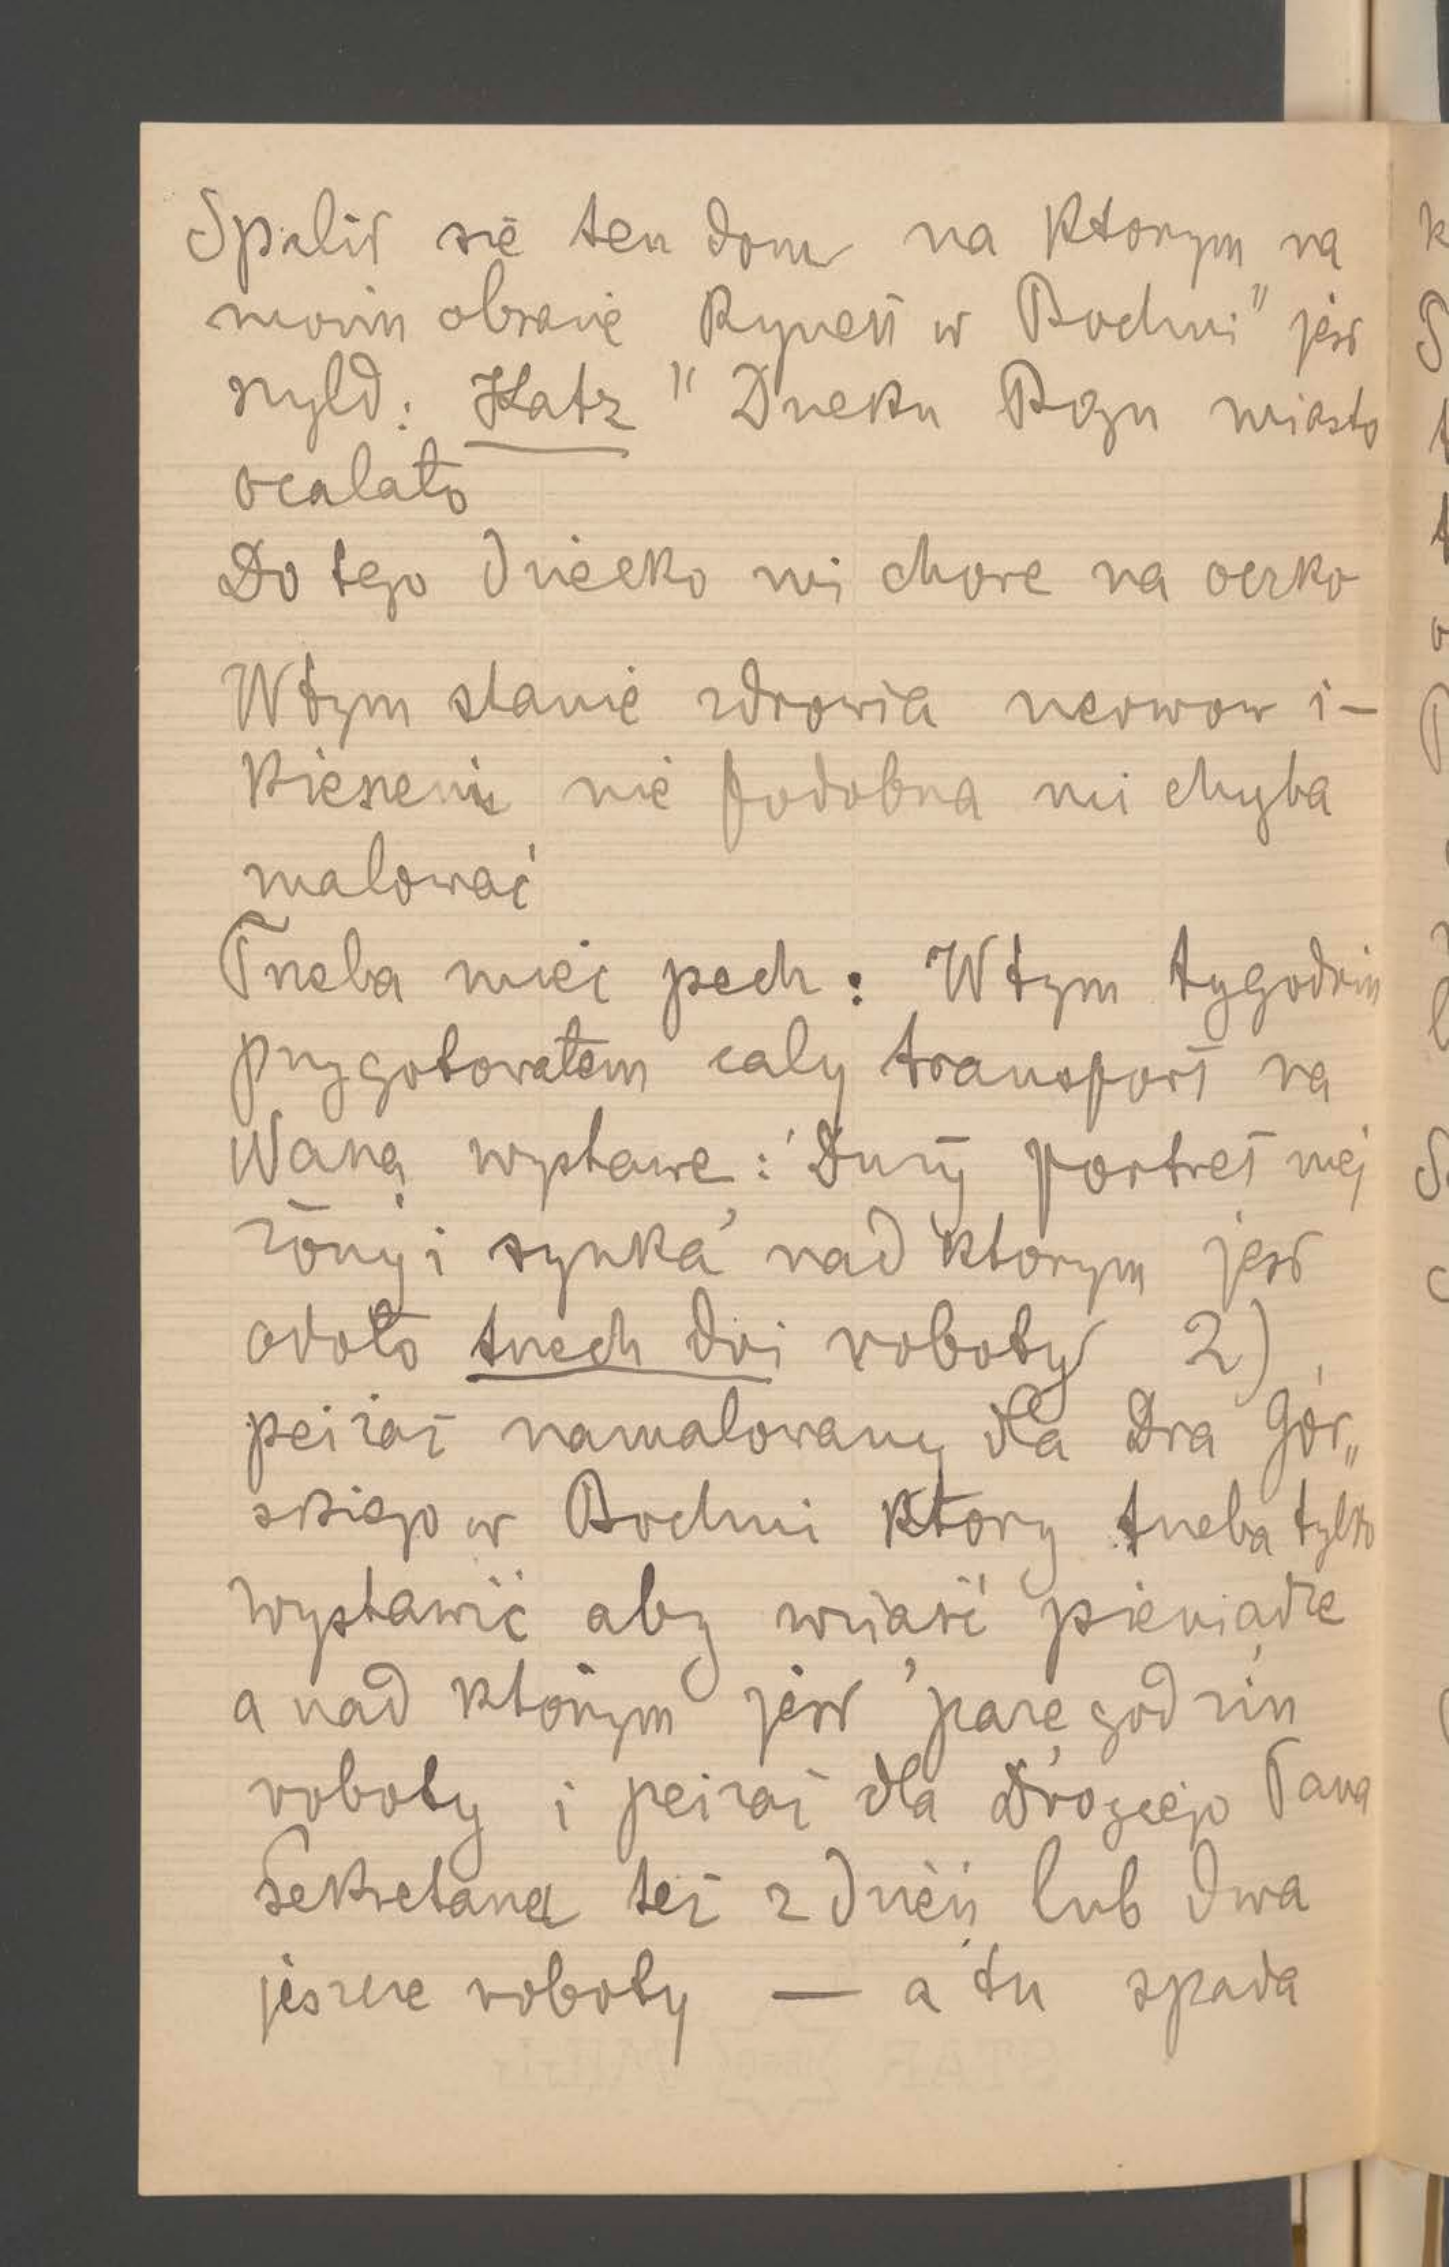 Spalił się ten dom na ktorym na
moim obrazie "Rynek w Bochni" jest
szyld: Katz" Dzieku Bogu miasto
ocalało
Do tego dziecko mi chore na oczko
W tym stanie zdrowia nerwow i –
kieszeni nie podobna mi chyba
malować
Trzeba mieć pech: W tym tygodniu
przygotowałem caly transport na
Waszą wystawę: Duży portret mej
żony i synka nad ktorym jest
około trzech dni roboty 2)
pejzaż namalowany dla Dra Gór„
skiego w Bochni ktory trzeba tylko
wystawić aby wziąść pieniądze
a nad którym jest parę godzin
roboty i pejzaż dla Drogiego Pana
Sekretarza też z dzień lub dwa
jeszcze roboty — a tu spada